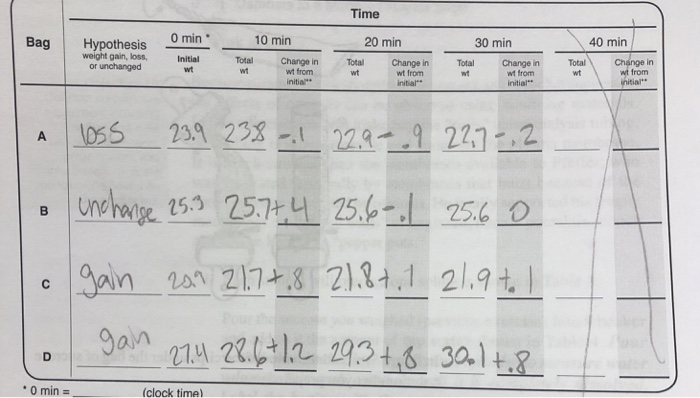 Time
Bag Hypothesis weight gain, loss, or unchanged 0 min * 10 min 20 min 30 min 40 min
Initial wt Total wt Change in wt from initial** Total wt Change in wt from initial** Total wt Change in wt from initial** Total wt Change in wt from initial**
A loss 23.9 23.8 -.1 22.9 -.9 22.7 -.2
B unchange 25.3 25.7 +.4 25.6 -.1 25.6 0
C gain 20.9 21.7 +.8 21.8 +.1 21.9 +.1
D gain 27.4 28.6 +1.2 29.3 +.8 30.1 +.8
* 0 min = (clock time)